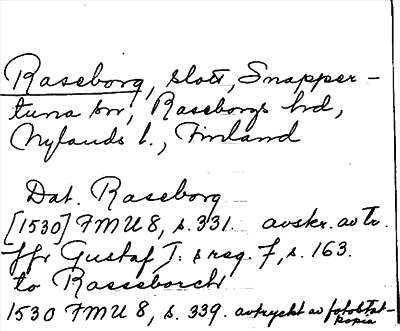 Raseborg, slott, Snapper-
tuna sn, Raseborgs hd,
Nylands l., Finland
Dat. Raseborg
[1530] FMU 8, s. 331. avskr. av tr.
ffr Gustaf I: s reg. 7, s. 163.
to Rasseborch
1530 FMU 8, s. 339. avtryckt av fotostat-
kopia